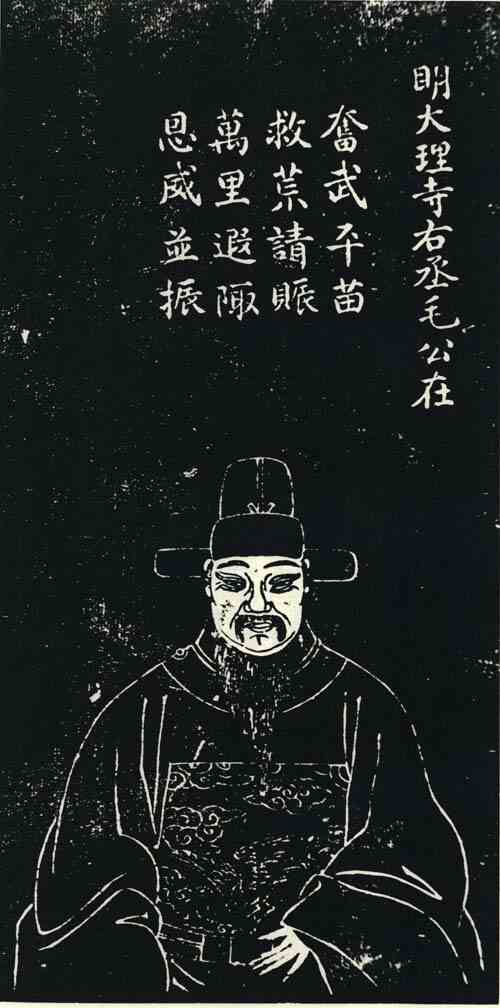 明大理寺右丞毛公在
奮武平苗
救荒請賑
萬里遐陬
恩威並振